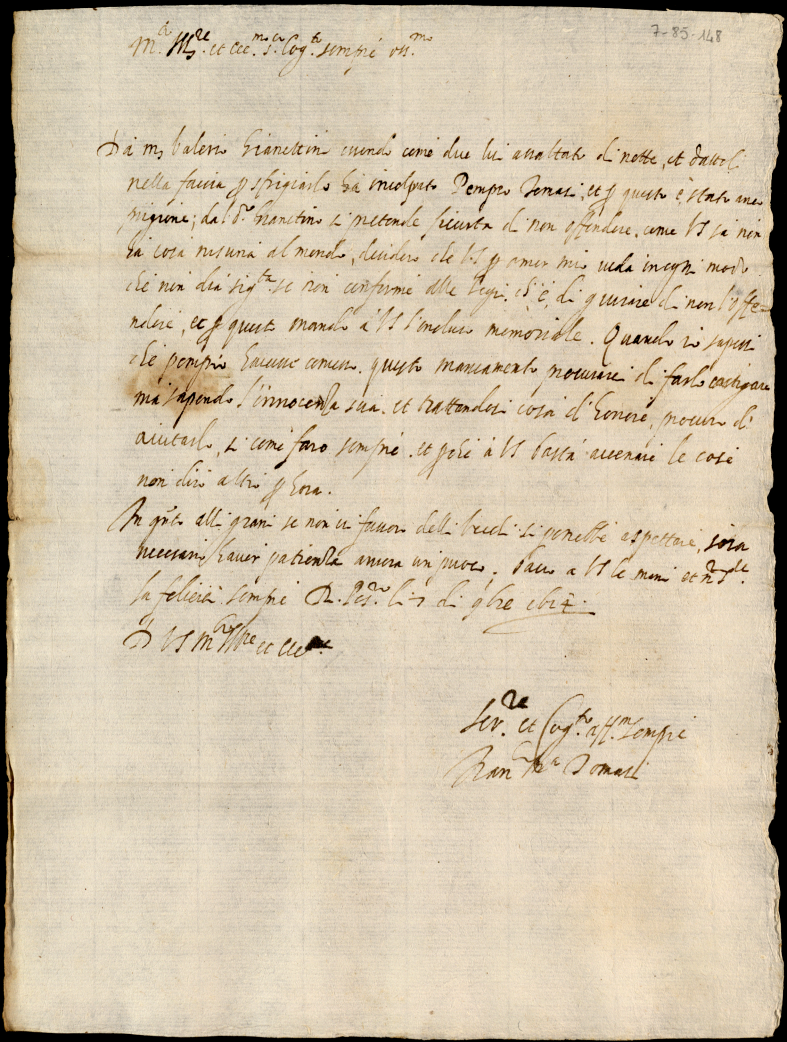 7-85-148
M.to Ill.re et Ecc.mo s.r Cog.to sempre oss.mo
Da m. Valerio Gianettini essendo come due lui assaltato di notte, et dattoli
nella faccia p sfrigiarlo ha incolpato Pompeo Tomasi, et p questo è, stato
prigione; dal d.o Gianettino si pretende sicurtà di non offendere, come VS sa non
ha cosa nisuna al mondo, desidero che VS p amor mio veda in ogni modo
che non dia sig.tà se non conforme alle legi, ch'è, di giurare di non l'offe-
ndere, et p questo mando à VS l'incluso memoriale. Quando io sapessi
che pompeo havesse comesso questo mancamento procurarei di farlo castigare
mà sapendo l'innocenza sua. et trattandosi cosa d'honore, procuro di
aiutarlo, si come farò sempre. et pche à VS basta accenare le cose
non dirò altro p hora.
In q.to alli grani se non ci favor delli si potrebbe aspettare, sarà
necessario haver patienza ancora un puoco. Bacio a VS le mani et n.ro S.re
la feliciti sempre Di li 7 di 9bre 1614.
D VS M.to Ill.re et Ecc.ma
Ser.re et Cog.to aff.mo sempre
Fran.co M.a Tomasi